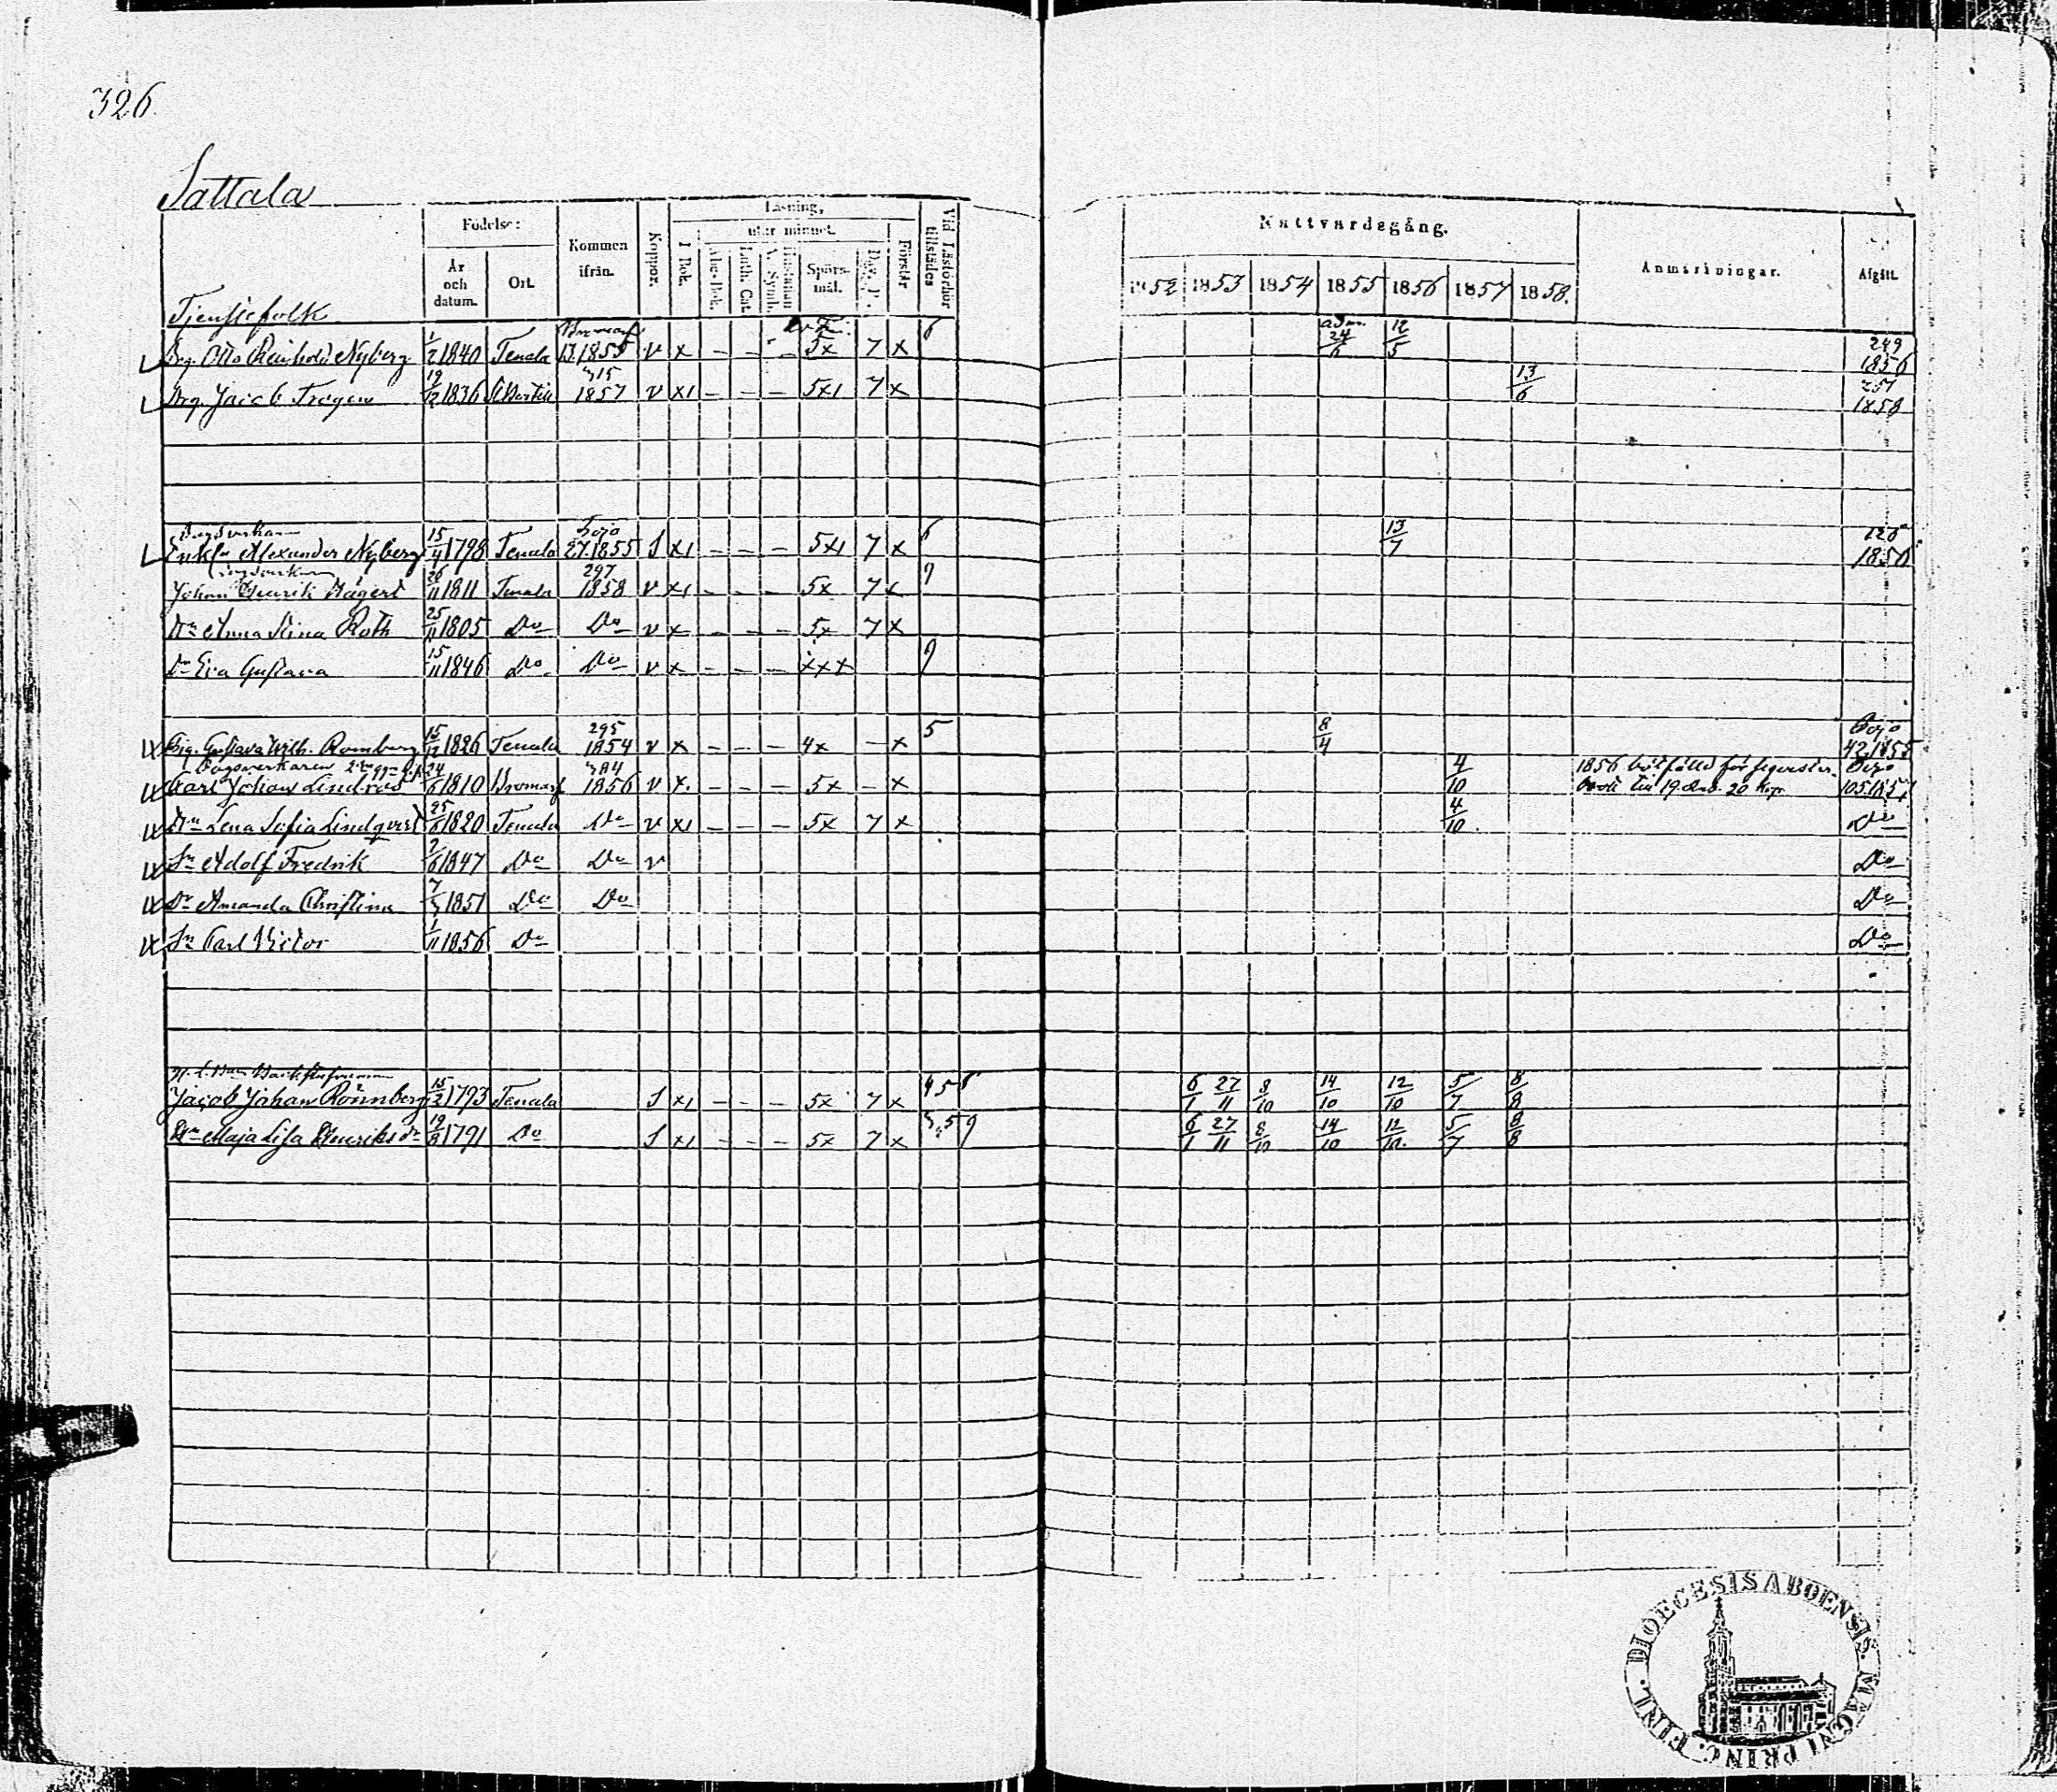 326.
Sattala
Tjenstefolk
Födelse:
År och datum.
Ort.
Kommen ifrån.
Koppor.
Läsning,
I Bok.
utur minnet.
Abc-Bok.
Luth. Cat.
Spörs-mål.
Förstår
Vid Läsförhör tillstädes
Nattvardsgång.
1852 1853 1854 1855 1856 1857 1858.
Anmärkningar.
Afgått.
Bromarf adm. 6
Drg. Otto Reinhold Nyberg 1/2 1840 Tenala 1855 v x – – – 5x 7 x 24/6 12/5 249 1856
Drg. Jacob Tragen 19/12 1836 1857 v x1 – – – 5x1 7 x 13/6 1858
Enkl. Alexander Nyberg 15/4 1798 Tenala 27.1855 S x1 – – – 5x1 7 x 6 13/7
Johan Henrik Hägert 26/11 1811 Tenala 297 1858 v x1 – – – 5x 7 x 9
Hu Anna Stina Roth 25/11 1805 Do Do v x – – – 5x 7 x
Dr Eva Gustava 15/11 1846 Do Do v x – – – xxx 9
Pig. Gustava Wilh. Romberg 15/12 1826 Tenala 295 1854 v x – – – 4x – x 5 8/4 Pojo 42.1855
Carl Johan Lindroos 24/6 1810 Bromarf 1856 v x – – – 5x – x 4/10 1856 bötfälld för 19 20 kop. 105.1857
Hu Lena Sofia Lindqvist 25/6 1820 Tenala Do v x1 – – – 5x 7 x 4/10 Do
Sn Adolf Fredrik 2/6 1847 Do Do v Do
Dr Amanda Christina 7/5 1851 Do Do Do
Sn Carl Victor 1/11 1856 Do Do
Jacob Johan Rönnberg 15/2 1793 Tenala S x1 – – – 5x 7 x 4 5 6 6/1 27/11 8/10 14/10 12/10 5/7 8/8
Hu Maja Lisa Henriksdr 19/8 1791 Do S x1 – – – 5x 7 x 6/1 27/11 8/10 14/10 12/10 5/7 8/8
DIOECESIS ABOENSIS. MAGNI PRINC. FINL.